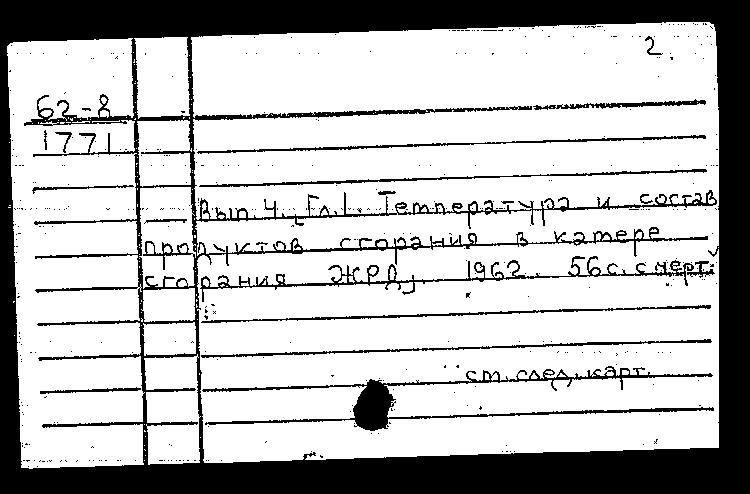 2.
62-8
1771
Вып. 4. Гл. 1. Температура и состав
продуктов сгорания в камере
сгорания ЖРД. 1962. 56 с. с черт.
см. след. карт.